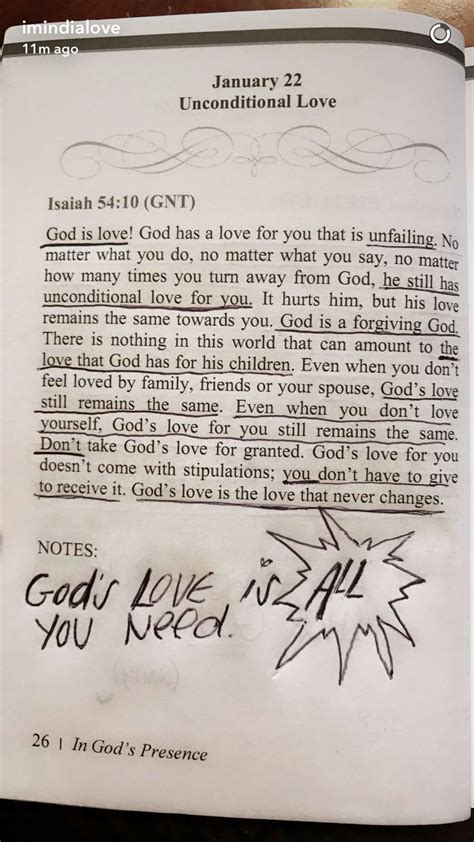 imindialove
11m ago
January 22
Unconditional Love
Isaiah 54:10 (GNT)
God is love! God has a love for you that is unfailing. No
matter what you do, no matter what you say, no matter
how many times you turn away from God, he still has
unconditional love for you. It hurts him, but his love
remains the same towards you. God is a forgiving God.
There is nothing in this world that can amount to the
love that God has for his children. Even when you don't
feel loved by family, friends or your spouse, God's love
still remains the same. Even when you don't love
yourself, God's love for you still remains the same.
Don't take God's love for granted. God's love for you
doesn't come with stipulations; you don't have to give
to receive it. God's love is the love that never changes.
NOTES:
God's LOVE is ALL
YOU NEED.
26 | In God's Presence